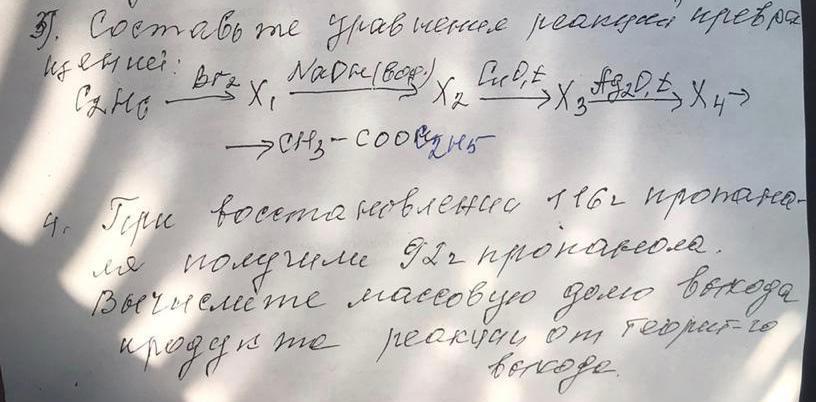 3). Составьте уравнения реакций превра
щений:
C₂H₆ —Br₂→ X₁ —NaOH(вод.)→ X₂ —CuO,t→ X₃ —Ag₂O,t→ X₄ →
→ CH₃-COOC₂H₅
4. При восстановлении 116г пропана-
ля получили 92г пропанола.
Вычислите массовую долю выхода
продукта реакции от теорит-го
выхода.